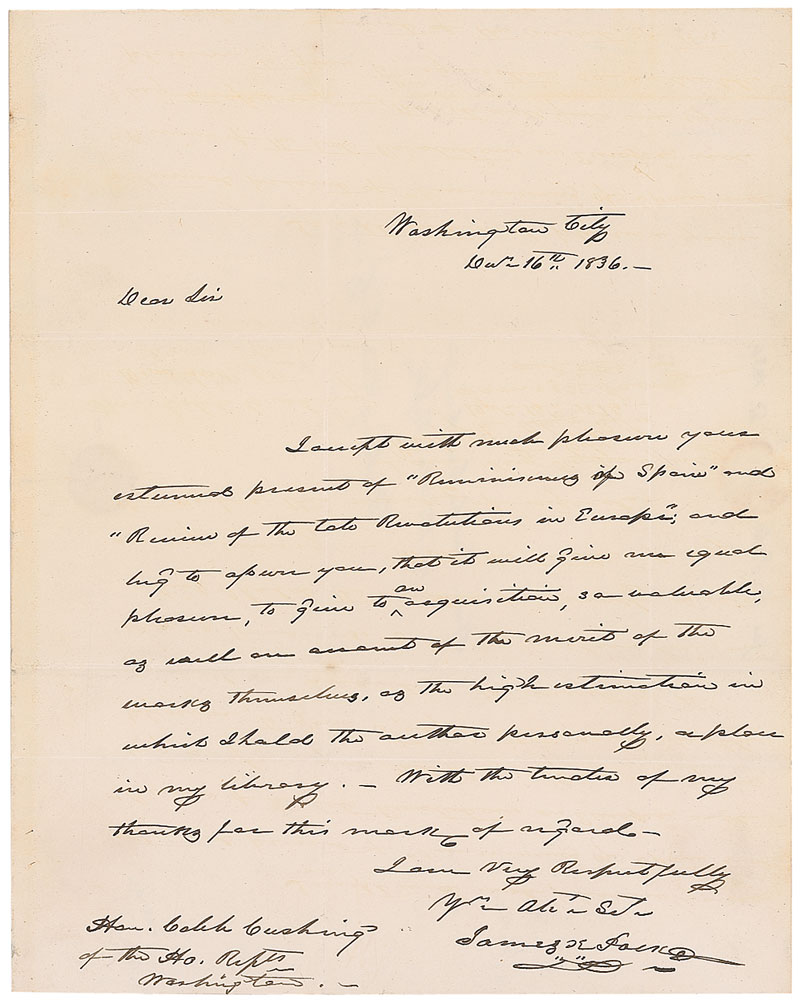 Washington City
Decr 16th 1836.—
Dear Sir
I accept with much pleasure your
esteemed present of "Reminiscences of Spain" and
"Review of the late Revolutions in Europe"; and
beg to assure you, that it will give me equal
pleasure, to give to an acquisition, so valuable,
as well on account of the merit of the
works themselves, as the high estimation in
which I hold the author personally, a place
in my library. — With the tender of my
thanks for this mark of regard—
I am Very Respectfully
Yr Obt Sert
James K Polk
Hon. Caleb Cushing
of the Ho. Repts
Washington. —